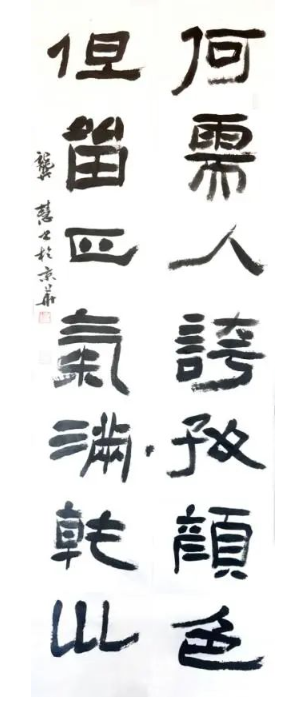 何需人誇好顔色
但留正氣滿乾坤
龔慧书於京華